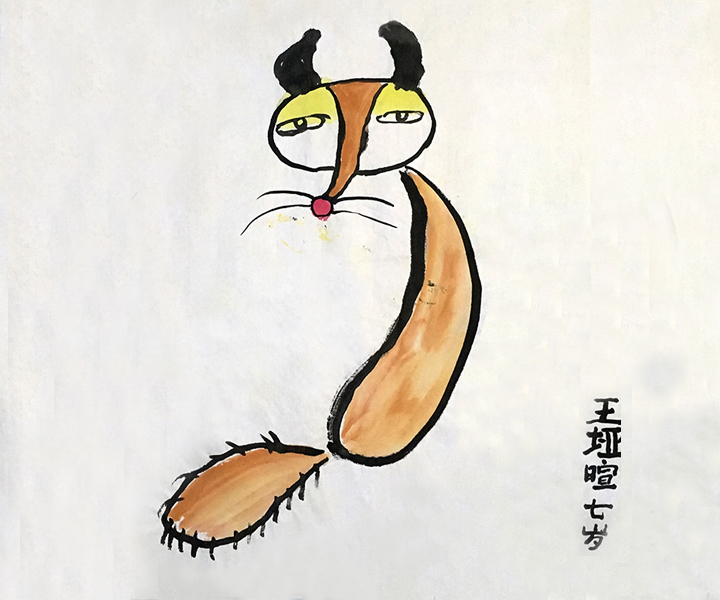 王垭暄七岁